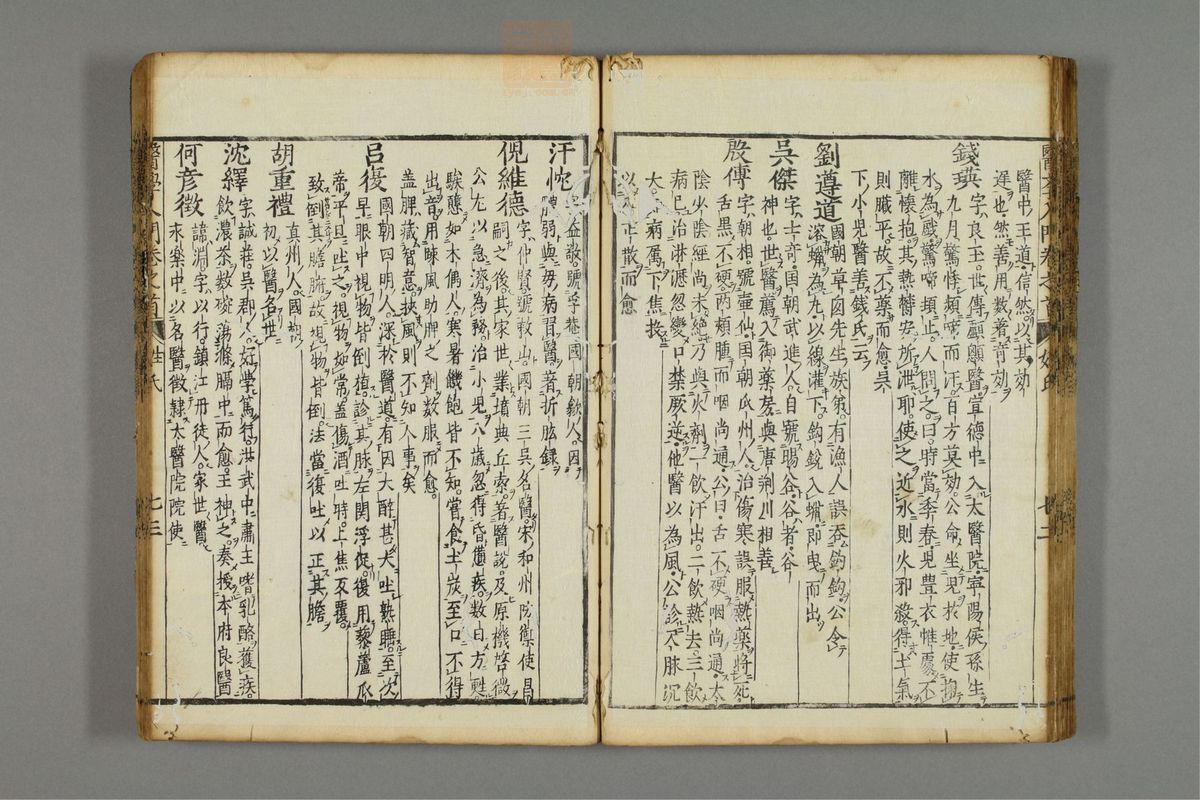 醫中王道信然以其効
遲也然善用數者竒効
錢瑛 字良玉世傳顱顖醫宣德中入太醫院寧陽侯孫生
九月驚悸頻啼而汗百方莫効公命坐兒於地使掬
水為戲驚啼頓止人問之曰時當季春兒豊衣帷處不
離懷抱其熱欝安所泄耶使之近水則火邪發得土氣
則臟平故不藥而愈吳
下小兒醫善錢氏云
劉遵道 國朝草囪先生族弟有漁人誤吞釣鈎公令
溶蠟為丸以線灌下鈎銳入蠟即曳而出
吳傑 字士竒国朝武進人自號暘谷谷者谷
神也世醫薦入御藥房與唐荆川相善
殷傳 字朝相號壷仙国朝瓜州人治傷寒誤服熱藥將死
舌黒不硬両頰腫而咽尚通公曰舌不硬咽尚通太
陰少陰經尚未絕乃與火劑一飲汗出二飲熱去三飲
病已治淋瀝忽變口禁厥逆他醫以為風公診大脉沉
大
病属下焦
散而愈
汪忱 益敬號
菴國朝歙人因
脾弱與毋病習醫著折肱録
倪維德 字仲賢號敕山國朝三吳名醫宋和州防禦使昌
嗣之後其家世業墳典丘索著醫說及原機啓微
公尢以急濟為務治小兒八歲忽得昏憒疾數日方甦
騃戇如木偶人寒暑饑飽皆不知嘗食土炭至口不得
出音用踈風助脾之劑数服而愈
盖脾藏智意挾風則不知人事矣
吕復 國朝四明人深於醫道有因大醉甚犬吐熟睡至次
早眼中視物皆倒植診其脉左関浮促復用藜蘆瓜
帝平旦吐之視物如常盖傷酒吐時上焦反覆
致倒其膽腑故視物皆倒法當復吐以正其膽
胡重禮 真州人國初
初以醫名世
沈繹 字誠荘吳郡人好學篤行洪武中肅王嗜乳酪獲疾
飲濃茶数碗蕩滌膈中而愈王神之奏授本府良醫
何彦徵 諱淵字以行鎮江丹徒人家世醫
永樂中以名醫徵隷太醫院院使